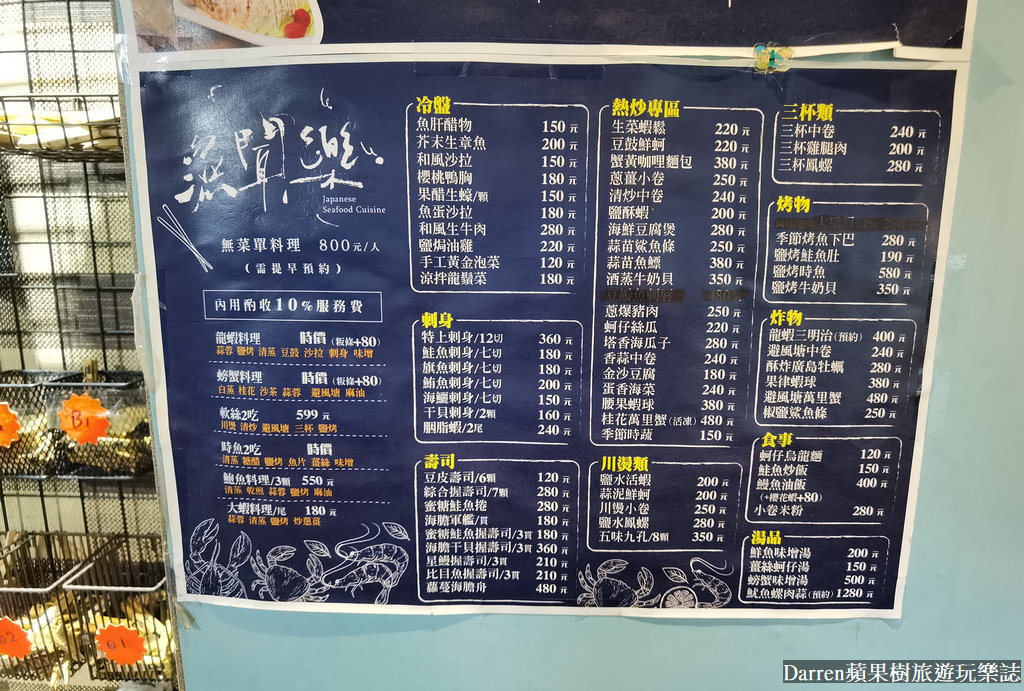 漁聞樂
Japanese
Seafood Cuisine
無菜單料理 800元/人
(需提早預約)
內用酌收10%服務費
龍蝦料理 時價(粄條+80)
蒜蓉 鹽烤 清蒸 豆鼓 沙拉 刺身 味增
螃蟹料理 時價(粄條+80)
白蒸 桂花 沙茶 蒜蓉 避風塘 麻油
軟絲2吃 599元
川燙 清炒 避風塘 三杯 鹽烤
時魚2吃 時價
清蒸 糖醋 鹽烤 魚片 薑絲 味增
鮑魚料理/3顆 550元
清蒸 乾煎 蒜蓉 鹽烤 麻油
大蝦料理/尾 180元
蒜蓉 清蒸 鹽烤 炒蔥薑
冷盤
魚肝醋物 150元
芥末生章魚 200元
和風沙拉 150元
櫻桃鴨胸 180元
果醋生蠔/顆 150元
魚蛋沙拉 180元
和風生牛肉 280元
鹽焗油雞 220元
手工黃金泡菜 120元
涼拌龍鬚菜 180元
刺身
特上刺身/12切 360元
鮭魚刺身/七切 180元
旗魚刺身/七切 180元
鮪魚刺身/七切 200元
海鱺刺身/七切 150元
干貝刺身/2顆 160元
胭脂蝦/2尾 240元
壽司
豆皮壽司/6顆 120元
綜合握壽司/7顆 280元
蜜糖鮭魚捲 280元
海膽軍艦/貫 180元
蜜糖鮭魚握壽司/3貫 180元
海膽干貝握壽司/3貫 360元
星鰻握壽司/3貫 210元
比目魚握壽司/3貫 210元
蘿蔓海膽舟 480元
熱炒專區
生菜蝦鬆 220元
豆鼓鮮蚵 220元
蟹黃咖哩麵包 380元
蔥薑小卷 250元
清炒中卷 240元
鹽酥蝦 200元
海鮮豆腐煲 280元
蒜苗鯊魚條 250元
蒜苗魚鰾 380元
酒蒸牛奶貝 350元
蔥爆豬肉 250元
蚵仔絲瓜 220元
塔香海瓜子 280元
香蒜中卷 240元
金沙豆腐 180元
蛋香海菜 240元
腰果蝦球 380元
桂花萬里蟹(活凍) 480元
季節時蔬 150元
川燙類
鹽水活蝦 200元
蒜泥鮮蚵 200元
川燙小卷 250元
鹽水鳳螺 280元
五味九孔/8顆 350元
三杯類
三杯中卷 240元
三杯雞腿肉 200元
三杯鳳螺 280元
烤物
季節烤魚下巴 280元
鹽烤鮭魚肚 190元
鹽烤時魚 580元
鹽烤牛奶貝 350元
炸物
龍蝦三明治(預約) 400元
避風塘中卷 240元
酥炸廣島牡蠣 280元
果律蝦球 380元
避風塘萬里蟹 480元
椒鹽鯊魚條 250元
食事
蚵仔烏龍麵 120元
鮭魚炒飯 150元
鰻魚油飯 400元
(+櫻花蝦+80)
小卷米粉 280元
湯品
鮮魚味增湯 200元
薑絲蚵仔湯 150元
螃蟹味增湯 500元
魷魚螺肉蒜(預約) 1280元
B1
02
01
Darren蘋果樹旅遊玩樂誌